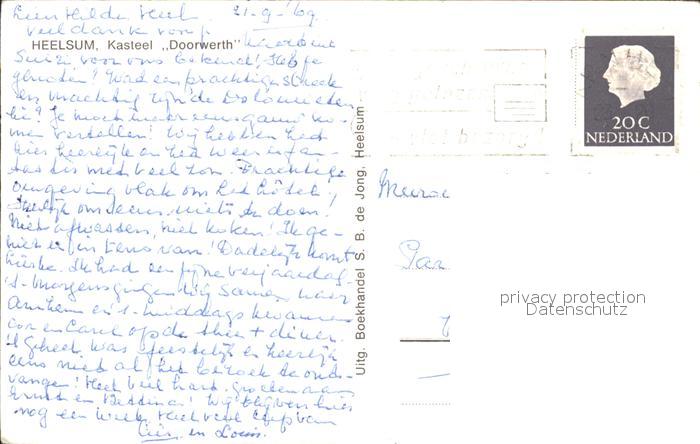 Lien Hilde Heel. 21-9-'69.
Veel dank voor je
HEELSUM, Kasteel „Doorwerth"
Suizi voor ons bekend! Heb je
genoten? Wat een prachtige streek
en machtig zijn de Dolomieten
hè? Je moet me er eens gauw ko-
men vertellen! Wij hebben het
hier heerlijk en het weer is fan-
tastis met veel zon. Prachtige
omgeving vlak om het hôtel!
Heerlijk om eens niets te doen.
Niet afwassen, niet koken! Ik ge-
niet er intens van! Dadelijk komt
Ik had een fijne verjaardag.
's-morgens gingen wij samen naar
Arnhem en 's-middags kwamen
Cor en Carel op de thee + diner.
't geheel was feestelijk en heerlijk
eens niet al het bezoek te ont-
vangen! Heel veel hart. groeten aan
en Bettina! Wij blijven hier
nog een week. Heel veel liefs van
Cier en Louis.
Uitg. Boekhandel S. B. de Jong, Heelsum
20 C
NEDERLAND
Mevro
Par
privacy protection
Datenschutz